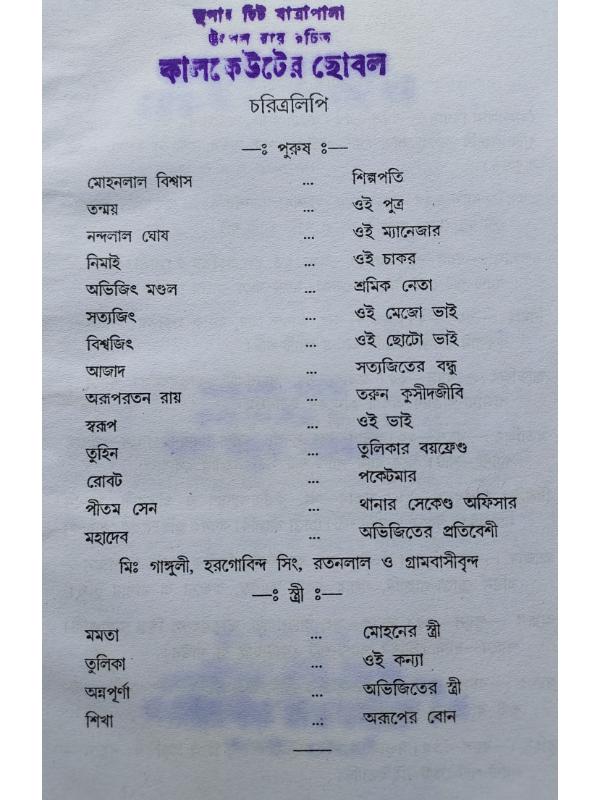 সুপার হিট যাত্রাপালা
উৎপল রায় রচিত
কালকেউটের ছোবল
চরিত্রলিপি
—ঃ পুরুষ ঃ—
মোহনলাল বিশ্বাস ... শিল্পপতি
তন্ময় ... ওই পুত্র
নন্দলাল ঘোষ ... ওই ম্যানেজার
নিমাই ... ওই চাকর
অভিজিৎ মণ্ডল ... শ্রমিক নেতা
সত্যজিৎ ... ওই মেজো ভাই
বিশ্বজিৎ ... ওই ছোটো ভাই
আজাদ ... সত্যজিতের বন্ধু
অরূপরতন রায় ... তরুন কুসীদজীবি
স্বরূপ ... ওই ভাই
তুহিন ... তুলিকার বয়ফ্রেণ্ড
রোবট ... পকেটমার
পীতম সেন ... থানার সেকেণ্ড অফিসার
মহাদেব ... অভিজিতের প্রতিবেশী
মিঃ গাঙ্গুলী, হরগোবিন্দ সিং, রতনলাল ও গ্রামবাসীবৃন্দ
—ঃ স্ত্রী ঃ—
মমতা ... মোহনের স্ত্রী
তুলিকা ... ওই কন্যা
অন্নপূর্ণা ... অভিজিতের স্ত্রী
শিখা ... অরূপের বোন